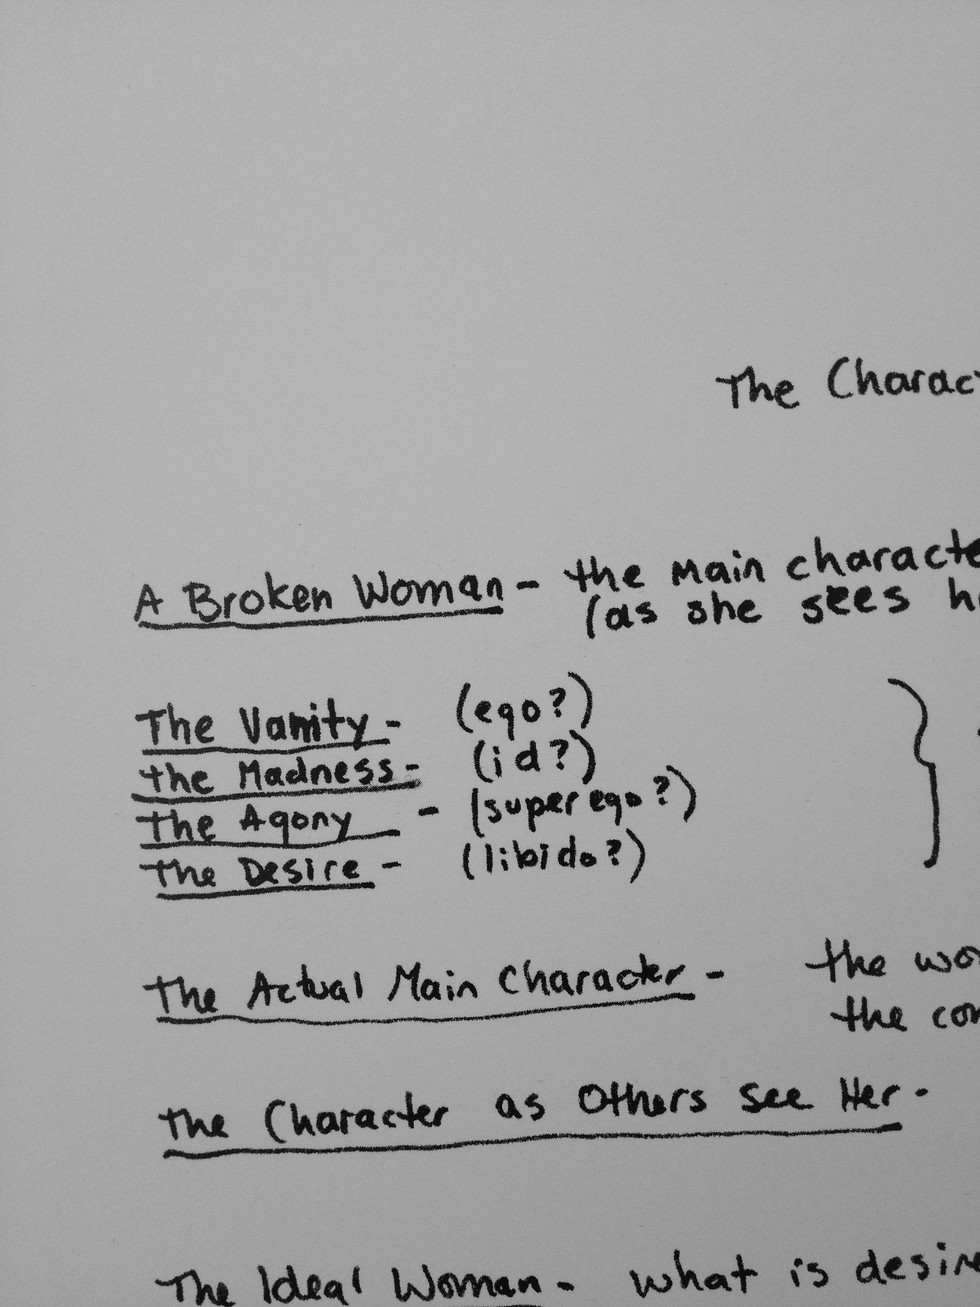 The Charac
A Broken Woman - the main characte
(as she sees h
The Vanity - (ego?)
the Madness - (id?)
the Agony - (super ego?)
the Desire - (libido?)
the Actual Main Character - the wo
the con
the Character as Others See Her -
The Ideal Woman - what is desire